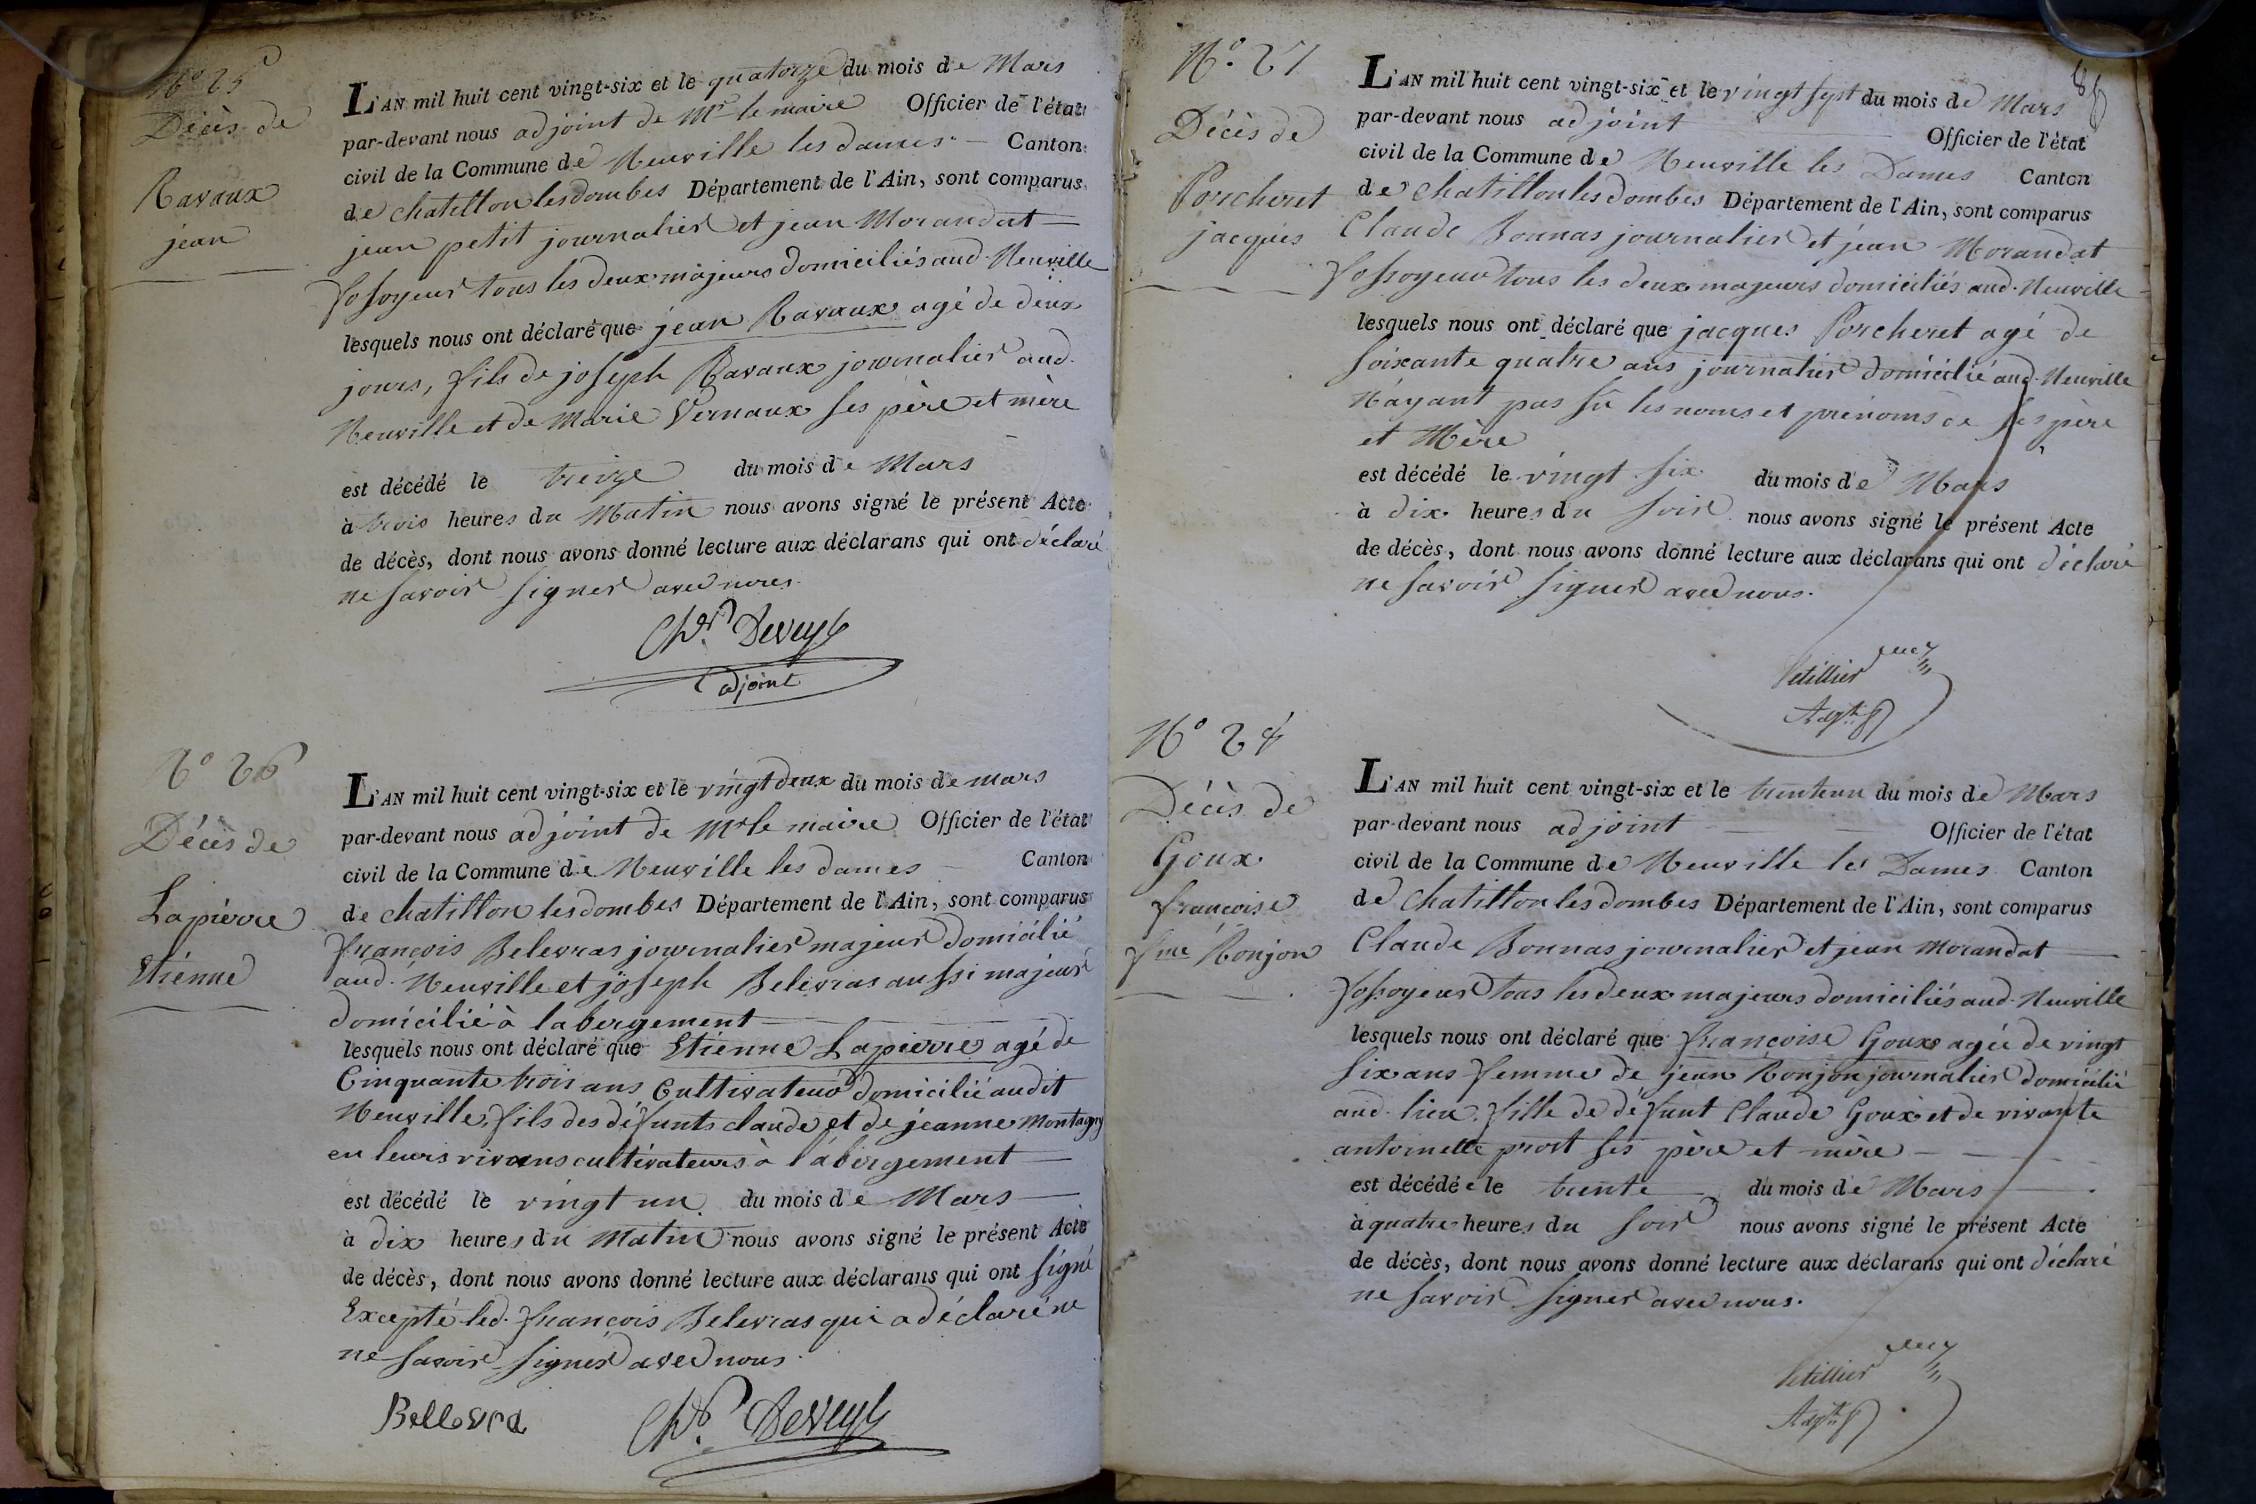 N° 25
Décès de
Ravaux
jean
L'AN mil huit cent vingt-six et le quatorze du mois de Mars
par-devant nous adjoint de Mr le maire Officier de l'état
civil de la Commune de Neuville les dames - Canton
de chatillon les dombes Département de l'Ain, sont comparus
jean petit journalier et jean Morandat
fossoyeur tous les deux majeurs domiciliés aud. Neuville
lesquels nous ont déclaré que jean Ravaux agé de deux
jours, fils de joseph Ravaux journalier aud.
Neuville et de Marie Vernaux ses père et mère
est décédé le treize du mois de Mars
à trois heures du Matin nous avons signé le présent Acte
de décès, dont nous avons donné lecture aux déclarans qui ont déclaré
ne savoir signer avec nous.
Chr. Deveyle
adjoint
N° 26
Décès de
Lapierre
Etienne
L'AN mil huit cent vingt-six et le vingt deux du mois de mars
par-devant nous adjoint de Mr le maire Officier de l'état
civil de la Commune de Neuville les dames Canton
de chatillon les dombes Département de l'Ain, sont comparus
françois Belevras journalier majeur domicilié
aud. Neuville et joseph Belevras aussi majeur
domicilié à labergement
lesquels nous ont déclaré que Etienne Lapierre agé de
Cinquante trois ans Cultivateur domicilié audit
Neuville, fils des défunts claude et de jeanne Montagny
en leurs vivans cultivateurs à l'abergement
est décédé le vingt un du mois de Mars
à dix heures du Matin nous avons signé le présent Acte
de décès, dont nous avons donné lecture aux déclarans qui ont signé
Excepté led. françois Belevras qui a déclaré ne
ne savoir signer avec nous.
Bellevra Chr. Deveyle
86
N° 27
Décès de
Porcheret
jacques
L'AN mil huit cent vingt-six et le vingt sept du mois de Mars
par-devant nous adjoint Officier de l'état
civil de la Commune de Neuville les Dames Canton
de chatillon les dombes Département de l'Ain, sont comparus
Claude Bonnas journalier et jean Morandat
fossoyeur tous les deux majeurs domiciliés aud. Neuville
lesquels nous ont déclaré que jacques Porcheret agé de
soixante quatre ans journalier domicilié aud. Neuville
N'ayant pas sû les noms et prénoms de ses père
et Mère
est décédé le vingt six du mois de Mars
à dix heures du soir nous avons signé le présent Acte
de décès, dont nous avons donné lecture aux déclarans qui ont déclaré
ne savoir signer avec nous.
N° 28
Décès de
Goux
françoise
fme Ronjon
L'AN mil huit cent vingt-six et le trente un du mois de Mars
par-devant nous adjoint Officier de l'état
civil de la Commune de Neuville les Dames Canton
de chatillon les dombes Département de l'Ain, sont comparus
Claude Bonnas journalier et jean Morandat
fossoyeur tous les deux majeurs domiciliés aud. Neuville
lesquels nous ont déclaré que françoise Goux agée de vingt
six ans femme de jean Ronjon journalier domicilié
aud. lieu, fille de défunt Claude Goux et de vivante
antoinette prost ses père et mère
est décédée le trente du mois de Mars
à quatre heures du soir nous avons signé le présent Acte
de décès, dont nous avons donné lecture aux déclarans qui ont déclaré
ne savoir signer avec nous.